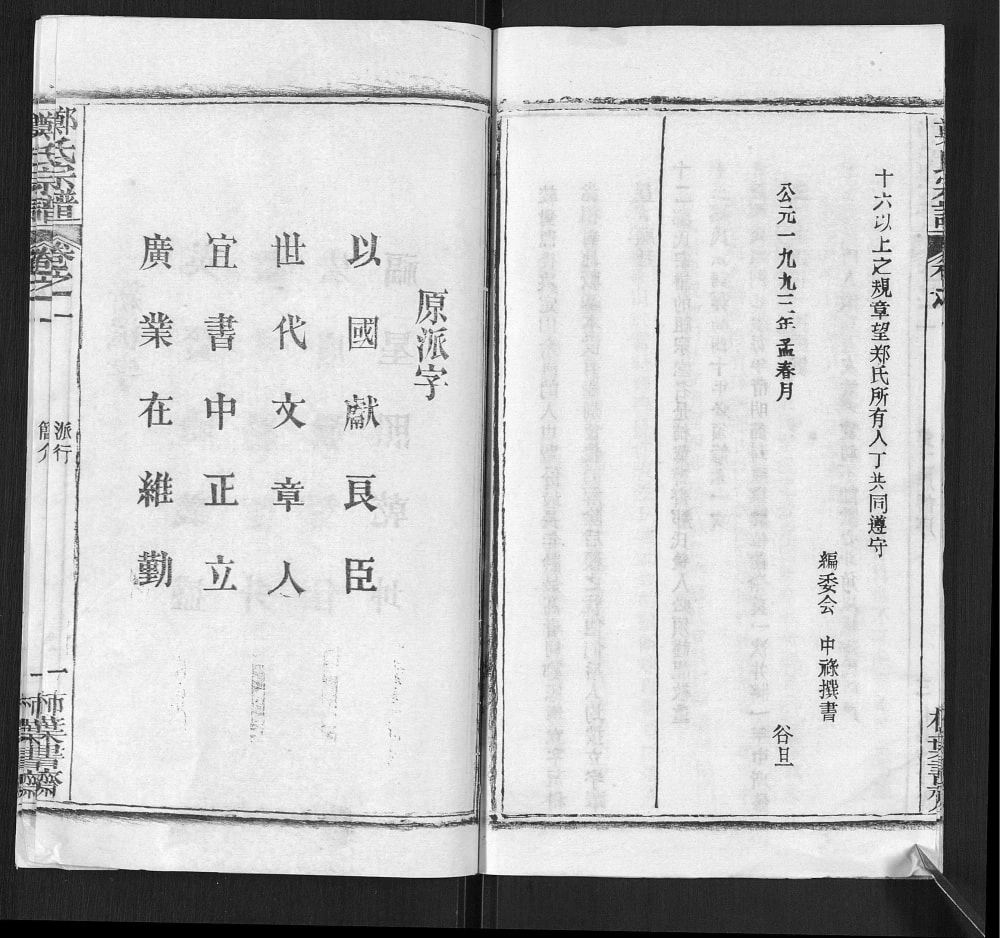 十六以上之规章望郑氏所有人丁共同遵守
编委会 中禄撰書
公元一九九三年孟春月
谷旦
原派字
以國獻良臣
世代文章人
宜書中正立
廣業在維勤
鄭氏宗譜
卷之一
派行
一
柿葉書齋
簡介
一